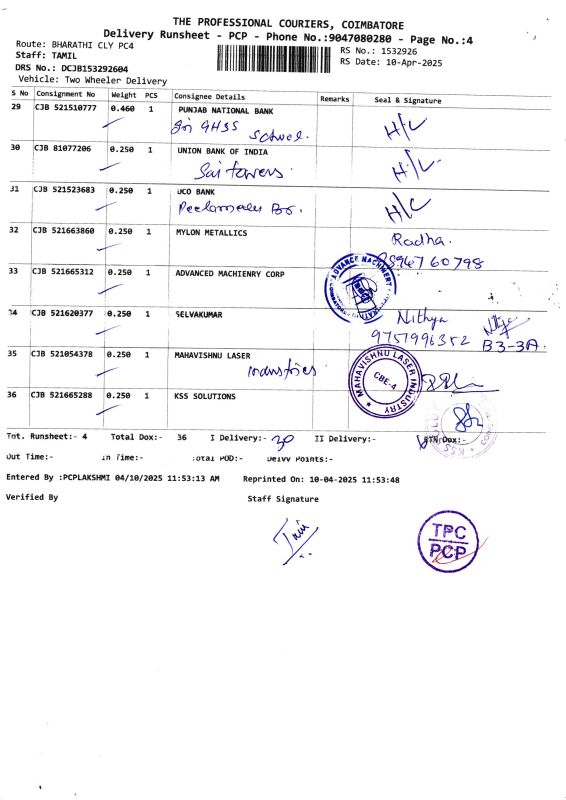 THE PROFESSIONAL COURIERS, COIMBATORE
Delivery Runsheet - PCP - Phone No.:9047080280 - Page No.:4
Route: BHARATHI CLY PC4
RS No.: 1532926
Staff: TAMIL
RS Date: 10-Apr-2025
DRS No.: DCJB153292604
Vehicle: Two Wheeler Delivery
S No Consignment No Weight PCS Consignee Details Remarks Seal & Signature
29 CJB 521510777 0.460 1 PUNJAB NATIONAL BANK H/C
GHSS School.
30 CJB 81077206 0.250 1 UNION BANK OF INDIA H/C
Sai towers.
31 CJB 521523683 0.250 1 UCO BANK H/C
32 CJB 521663860 0.250 1 MYLON METALLICS Radha.
60798
33 CJB 521665312 0.250 1 ADVANCED MACHIENRY CORP
34 CJB 521620377 0.250 1 SELVAKUMAR Nithya
9751996352 B3-3A.
35 CJB 521054378 0.250 1 MAHAVISHNU LASER
industries
MAHAVISHNU LASER INDUSTRY CBE-4
36 CJB 521665288 0.250 1 KSS SOLUTIONS
Tot. Runsheet:- 4 Total Dox:- 36 I Delivery:- 30 II Delivery:- RTN Dox:-
Out Time:- In Time:- Total POD:- Delvv Points:-
Entered By :PCPLAKSHMI 04/10/2025 11:53:13 AM Reprinted On: 10-04-2025 11:53:48
Verified By Staff Signature
TPC
PCP